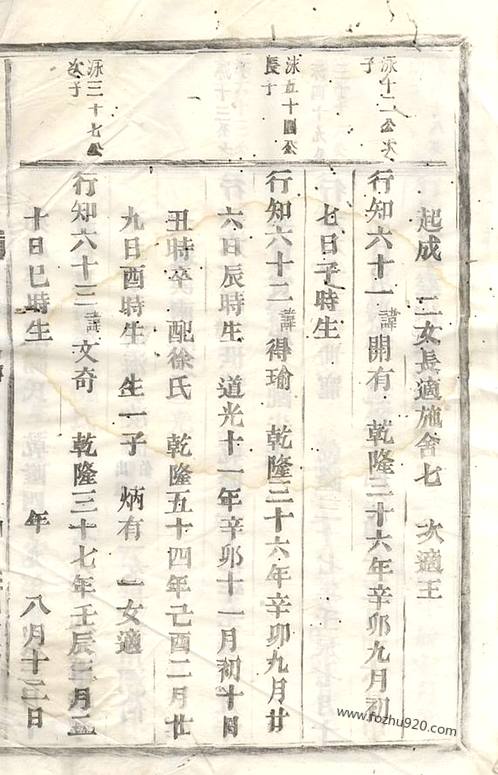 起成 二女長適施舍七 次適王
泳十二公次子
行知六十一諱開有 乾隆三十六年辛卯九月初
七日子時生
泳五十四公長子
行知六十二諱得瑜 乾隆三十六年辛卯九月廿
六日辰時生 道光十一年辛卯十一月初十日
丑時卒 配徐氏 乾隆五十四年己酉二月廿
九日酉時生 生一子 炳有 一女適
泳三十七公次子
行知六十三諱文奇 乾隆三十七年壬辰三月
十日巳時生 年 八月十三日
www.fozhu920.com